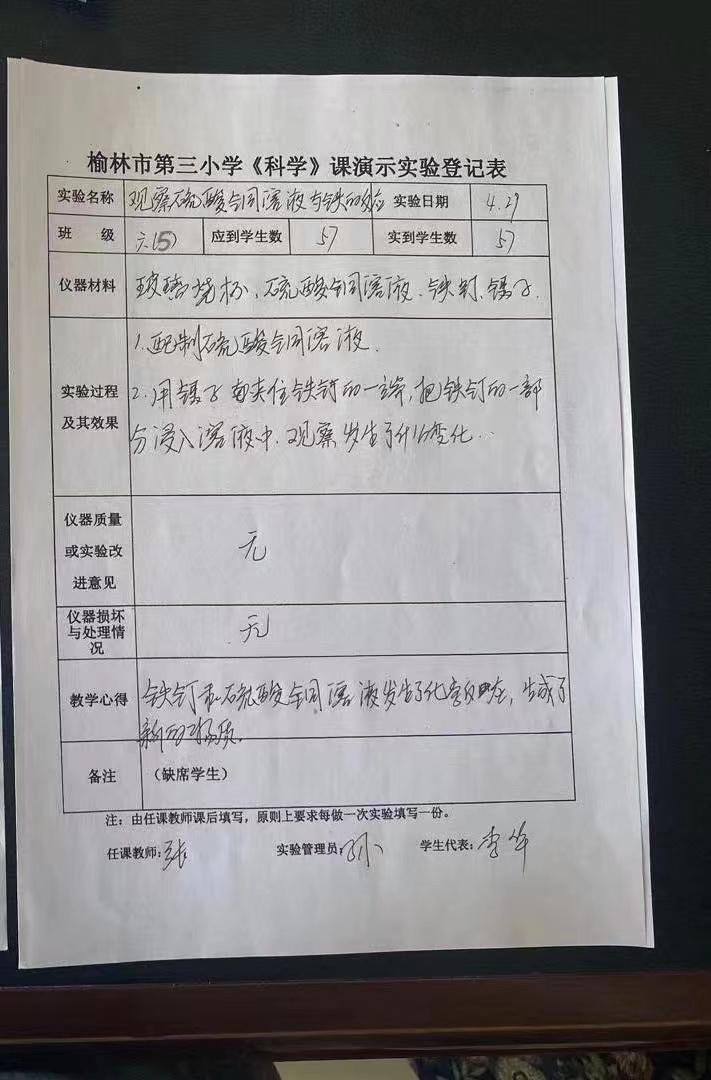 榆林市第三小学《科学》课演示实验登记表
实验名称 观察硫酸铜溶液与铁的反应 实验日期 4.29
班 级 六(5) 应到学生数 57 实到学生数 57
仪器材料 玻璃烧杯、硫酸铜溶液、铁钉、镊子.
1.配制硫酸铜溶液.
实验过程
及其效果
2.用镊子夹住铁钉的一端,把铁钉的一部
分浸入溶液中,观察发生了什么变化…
仪器质量
或实验改
进意见
无
仪器损坏
与处理情
况
无
教学心得 铁钉和硫酸铜溶液发生了化学反应,生成了
新的物质。
备注 (缺席学生)
注:由任课教师课后填写,原则上要求每做一次实验填写一份。
任课教师:张 实验管理员:孙 学生代表:李华